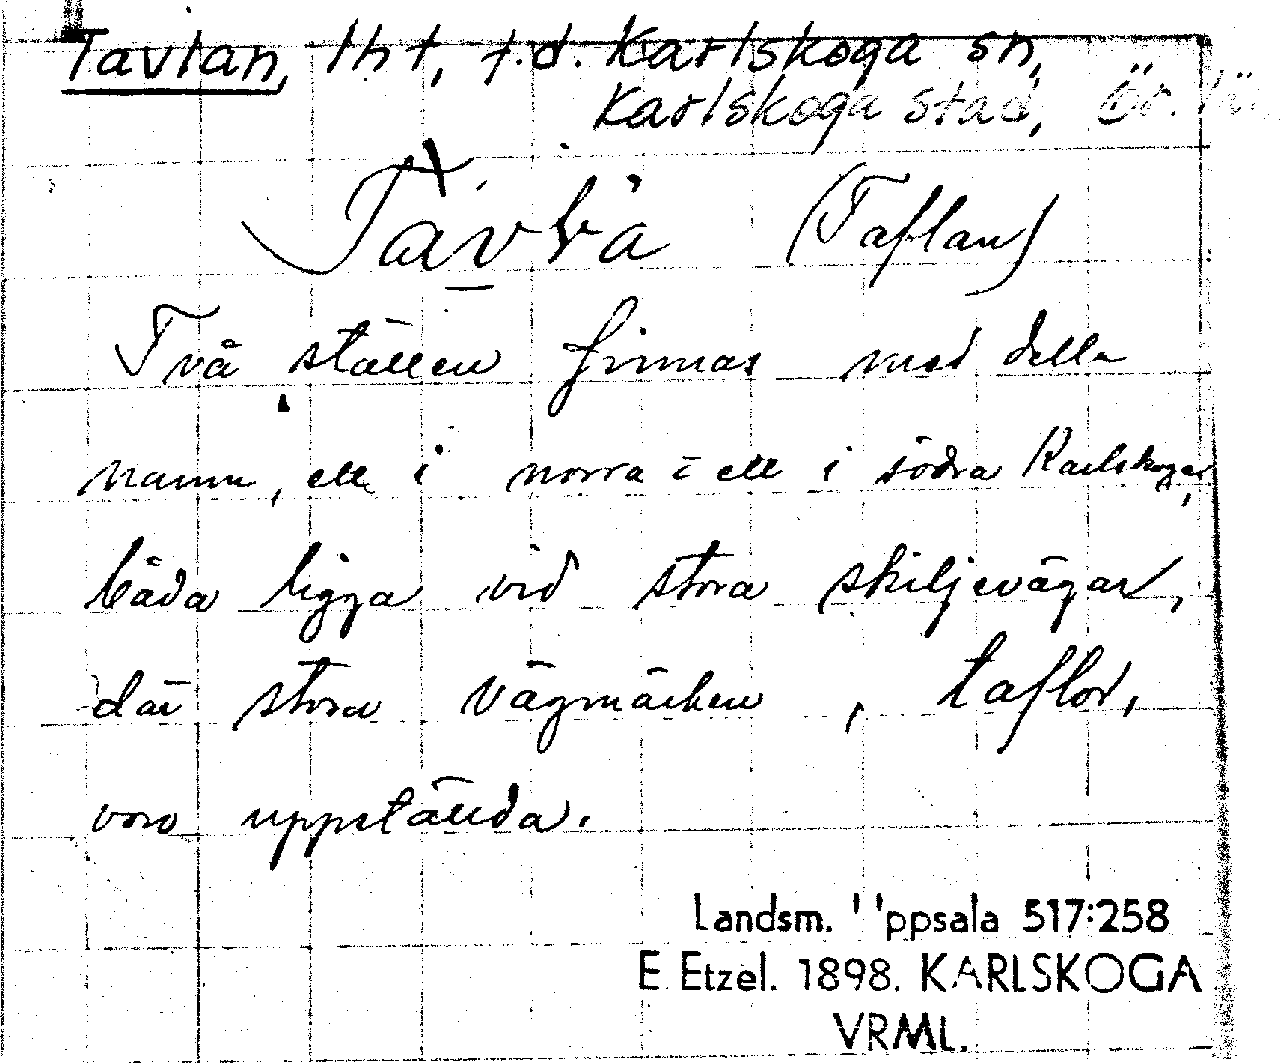 Tavlan, lht, f.d. Karlskoga sn,
Karlskoga stad, Ör. lä
(Taflan)
Två ställen finnas med detta
namn, ett i norra o ett i södra Karlskoga,
båda ligga vid stora skiljevägar,
där stora vägmärken, taflor,
voro uppstälda.
Landsm. Uppsala 517:258
E Etzel. 1898. KARLSKOGA
VRML.